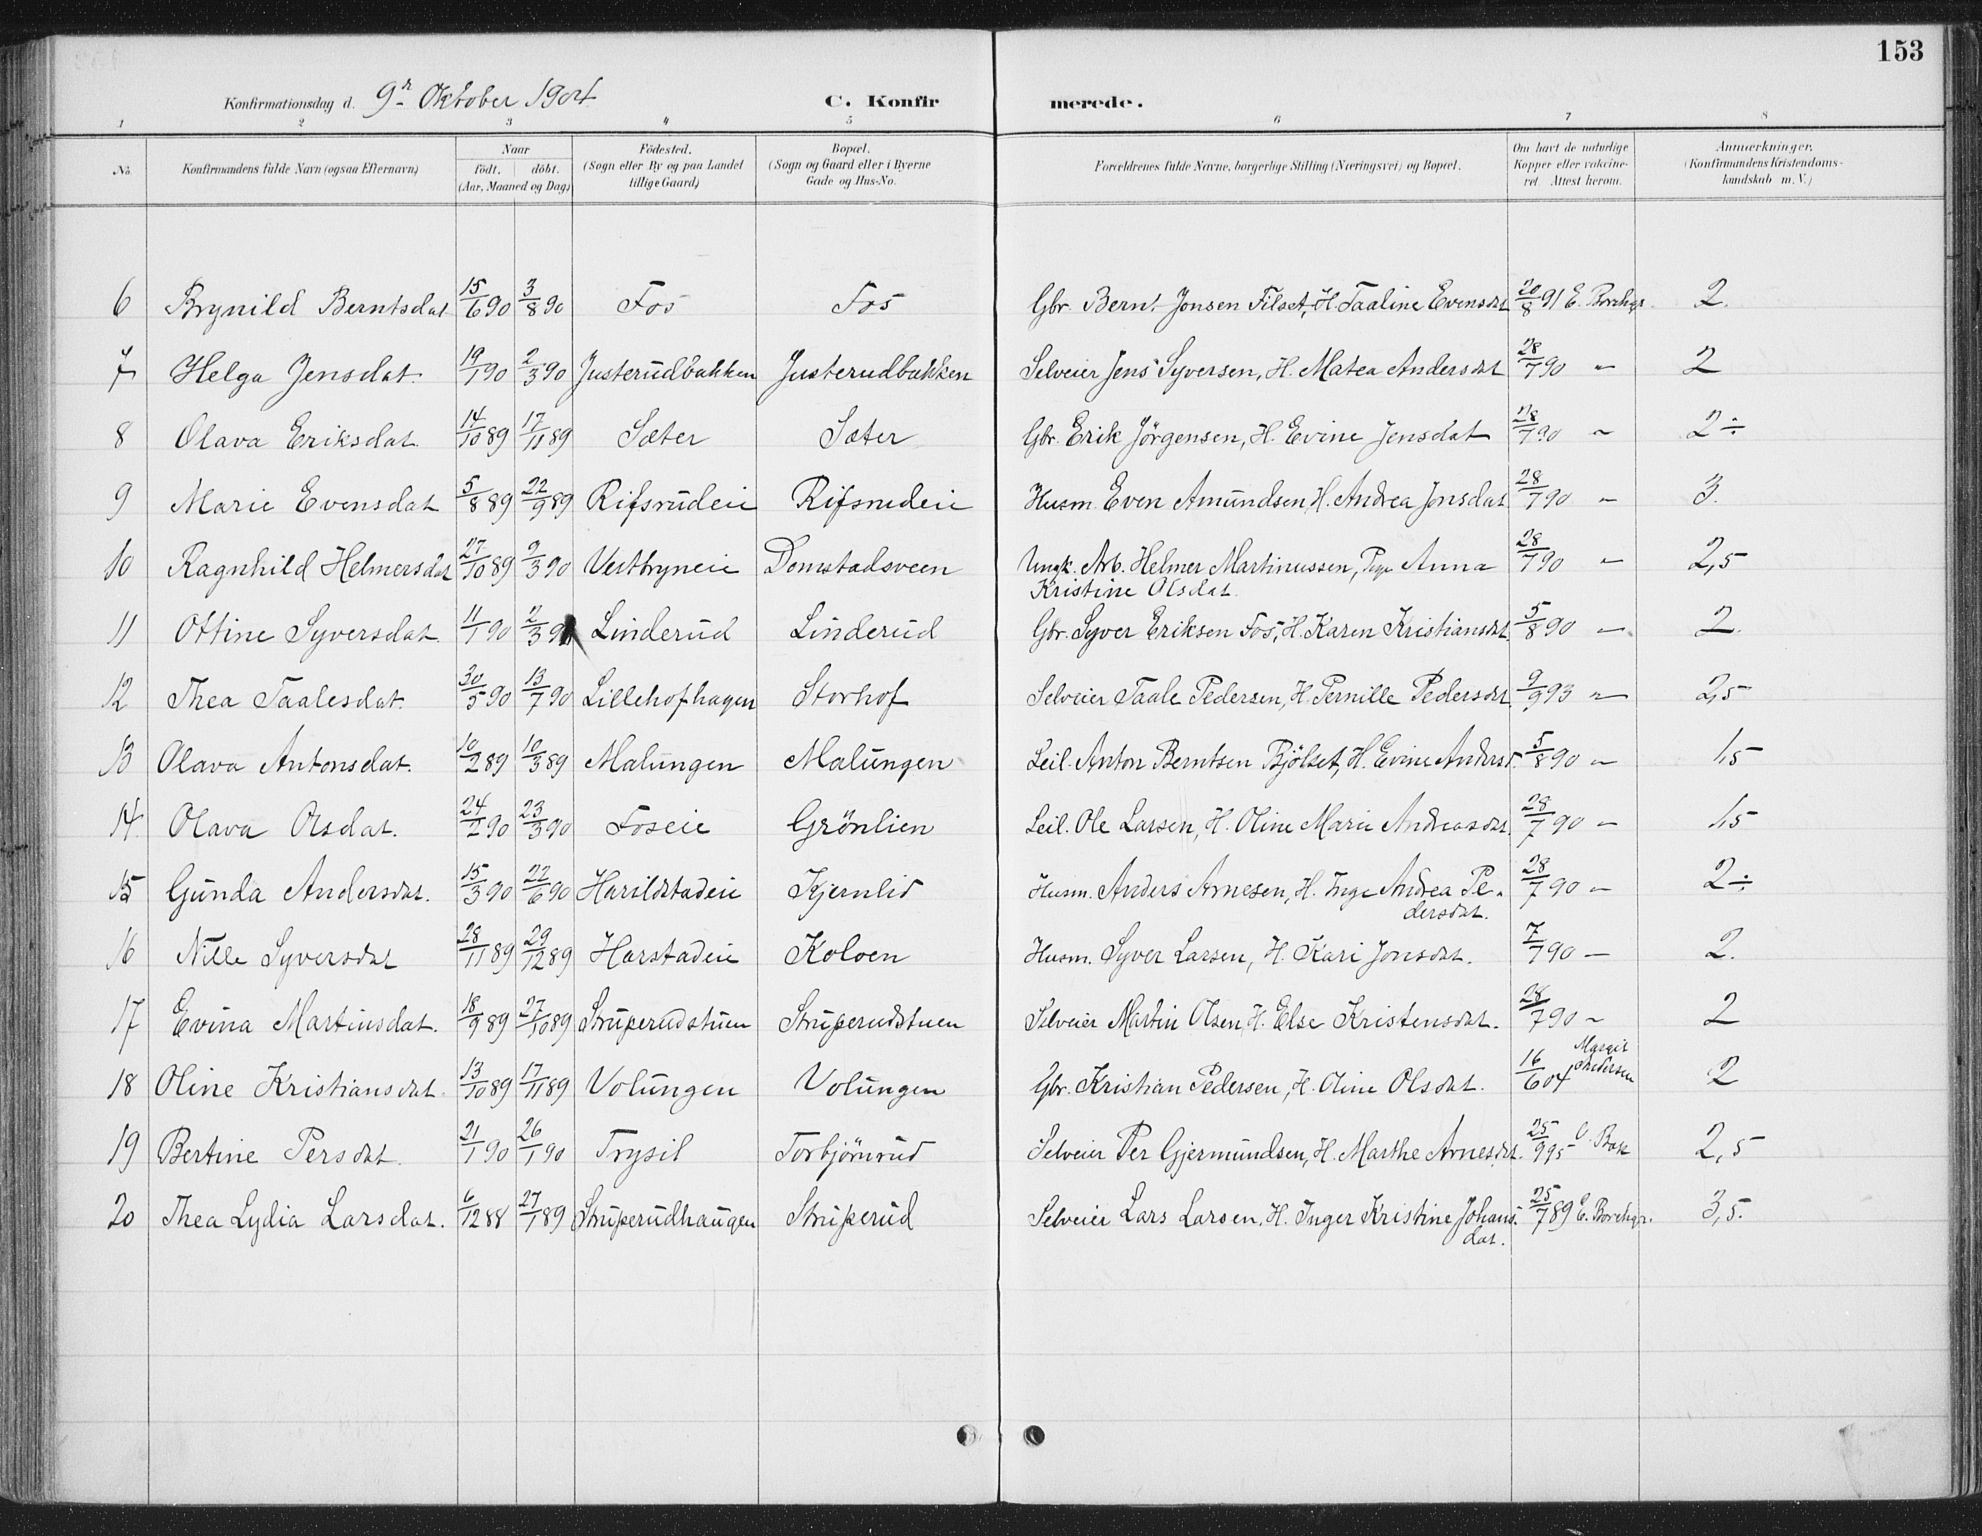 153
Konfirmationsdag d. 9n Oktober 1904 C. Konfirmerede.
1 2 3 4 5 6 7 8
No. Konfirmandens fulde Navn (ogsaa Efternavn) Naar födt. döbt. (Aar, Maaned og Dag) Födested. (Sogn eller By og paa Landet tillige Gaard) Bopæl. (Sogn og Gaard eller i Byerne Gade og Hus-No. Forældrenes fulde Navne, borgerlige Stilling (Næringsvei) og Bopæl. Om havt de naturlige Kopper eller vakcineret. Attest herom. Anmærkninger. (Konfirmandens Kristendomskundskab m. V.)
6 Brynild Berntsdat 15/6 90 3/8 90 Fos Fos Gbr. Bernt Jonsen Filset, H. Taaline Evensdat 20/8 91 E. Borchgr. 2.
7 Helga Jensdat. 19/1 90 2/3 90 Justerudbakken Justerudbakken Selveier Jens Syversen, H. Matea Andersdat 28/7 90 " 2
8 Olava Eriksdat 14/10 89 17/11 89 Sæter Sæter Gbr. Erik Jörgensen, H. Evine Jensdat 28/7 90 " 2÷
9 Marie Evensdat 5/8 89 22/9 89 Rifsrudeie Rifsrudeie Husm. Even Amundsen, H. Andrea Jonsdat 28/7 90 " 3.
10 Ragnhild Helmersdat 27/10 89 9/3 90 Vestbryneie Domstadsveen Ungk. Arb. Helmer Martinussen, Pige Anna 28/7 90 " 2,5
Kristine Olsdat.
11 Ottine Syversdat 11/1 90 2/3 90 Linderud Linderud Gbr. Syver Eriksen Fos, H. Karen Kristiansdat. 5/8 90 " 2.
12 Thea Taalesdat. 30/5 90 13/7 90 Lillehofhagen Storhof Selveier Taale Pedersen, H. Pernille Pedersdat 9/9 93 " 2,5
13 Olava Antonsdat. 10/2 89 10/3 89 Malungen Malungen Leil. Anton Berntsen Bjölset, H. Evine Andersd. 5/8 90 " 1,5
14 Olava Olsdat. 24/2 90 23/3 90 Foseie Grönlien Leil. Ole Larsen, H. Oline Marie Andreasdat. 28/7 90 " 1,5
15 Gunda Andersdat. 15/3 90 22/6 90 Harildstadeie Kjernlid Husm. Anders Arnesen, H. Inge Andrea Pe- 28/7 90 " 2÷
dersdat.
16 Nille Syversdat 28/11 89 29/12 89 Harstadeie Koloen Husm. Syver Larsen, H. Kari Jonsdat. 7/7 90 — 2.
17 Evina Martinsdat. 18/9 89 27/10 89 Struperudstuen Struperudstuen Selveier Martin Olsen, H. Else Kristensdat. 28/7 90 " 2
18 Oline Kristiansdat 13/10 89 17/11 89 Volungen Volungen Gbr. Kristian Pedersen, H. Oline Olsdat. 16/6 04 Margit Andersen 2
19 Bertine Persdat. 21/1 90 26/1 90 Trysil Torbjörnrud Selveier Per Gjermundsen, H. Marthe Arnesdat. 25/9 95 2,5
20 Thea Lydia Larsdat. 6/12 88 27/1 89 Struperudhaugen Struperud Selveier Lars Larsen, H. Inger Kristine Johans- 25/7 89 E. Borchgr. 3,5.
dat.